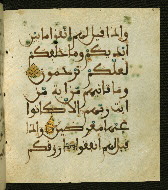 واذا قيل لهم اتقوا ما بين
ايديكم وما خلفكم
لعلكم ترحمون
وما تاتيهم من اية من
ايت ربهم الا كانوا
عنها معرضين واذا
قيل لهم انفقوا مما رزقكم